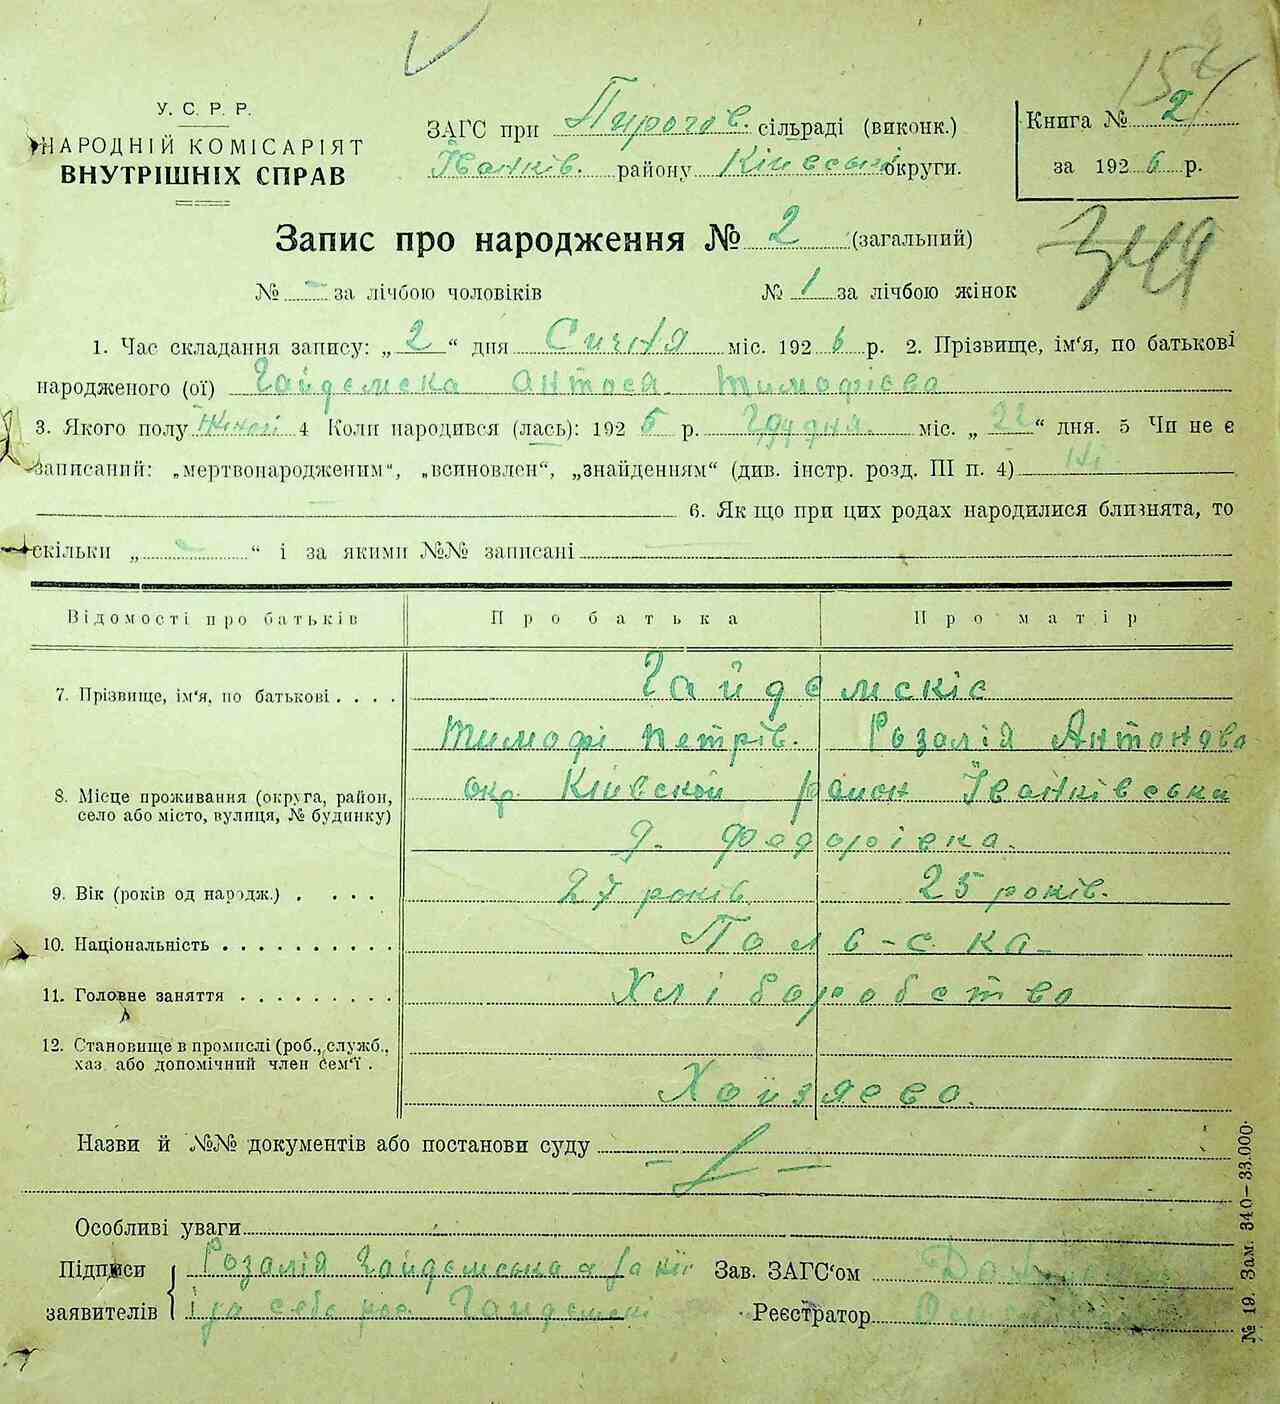 154
У. С. Р. Р.
НАРОДНІЙ КОМІСАРІЯТ
ВНУТРІШНІХ СПРАВ
ЗАГС при Пирогов. сільраді (виконк.)
Іванків. району Київської округи.
Книга № 2
за 1926 р.
Запис про народження № 2 (загальний)
349
№ - за лічбою чоловіків № 1 за лічбою жінок
1. Час складання запису: „2“ дня Січня міс. 1926 р. 2. Прізвище, ім'я, по батькові
народженого (ої) Гайдемска Антося Тимофієва
3. Якого полу Жіночі 4 Коли народився (лась): 1925 р. Грудня. міс. „22“ дня. 5 Чи не є
записаний: „мертвонародженим“, „всиновлен“, „знайденням“ (див. інстр. розд. III п. 4) Ні
6. Як що при цих родах народилися близнята, то
скільки „ - “ і за якими №№ записані
Відомості про батьків Про батька Про матір
7. Прізвище, ім'я, по батькові . . . . Гайдемскіє
Тимофі Петрів. Розалія Антонова
8. Місце проживання (округа, район, село або місто, вулиця, № будинку) окр Київской район Іванківська
д. Федорівка.
9. Вік (років од народж.) . . . . 27 років 25 років.
10. Національність . . . . . . . . . . Поль-ска-
11. Головне заняття . . . . . . . . . Хліборобство
12. Становище в промислі (роб., служб.,
хаз. або допомічний член сем'ї . Хоизяєва.
Назви й №№ документів або постанови суду
Особливі уваги
Підписи заявителів Розалія Гайдемська
Гайдемскі
Зав. ЗАГС'ом
Реєстратор
№ 19. Зам. 340–33.000.